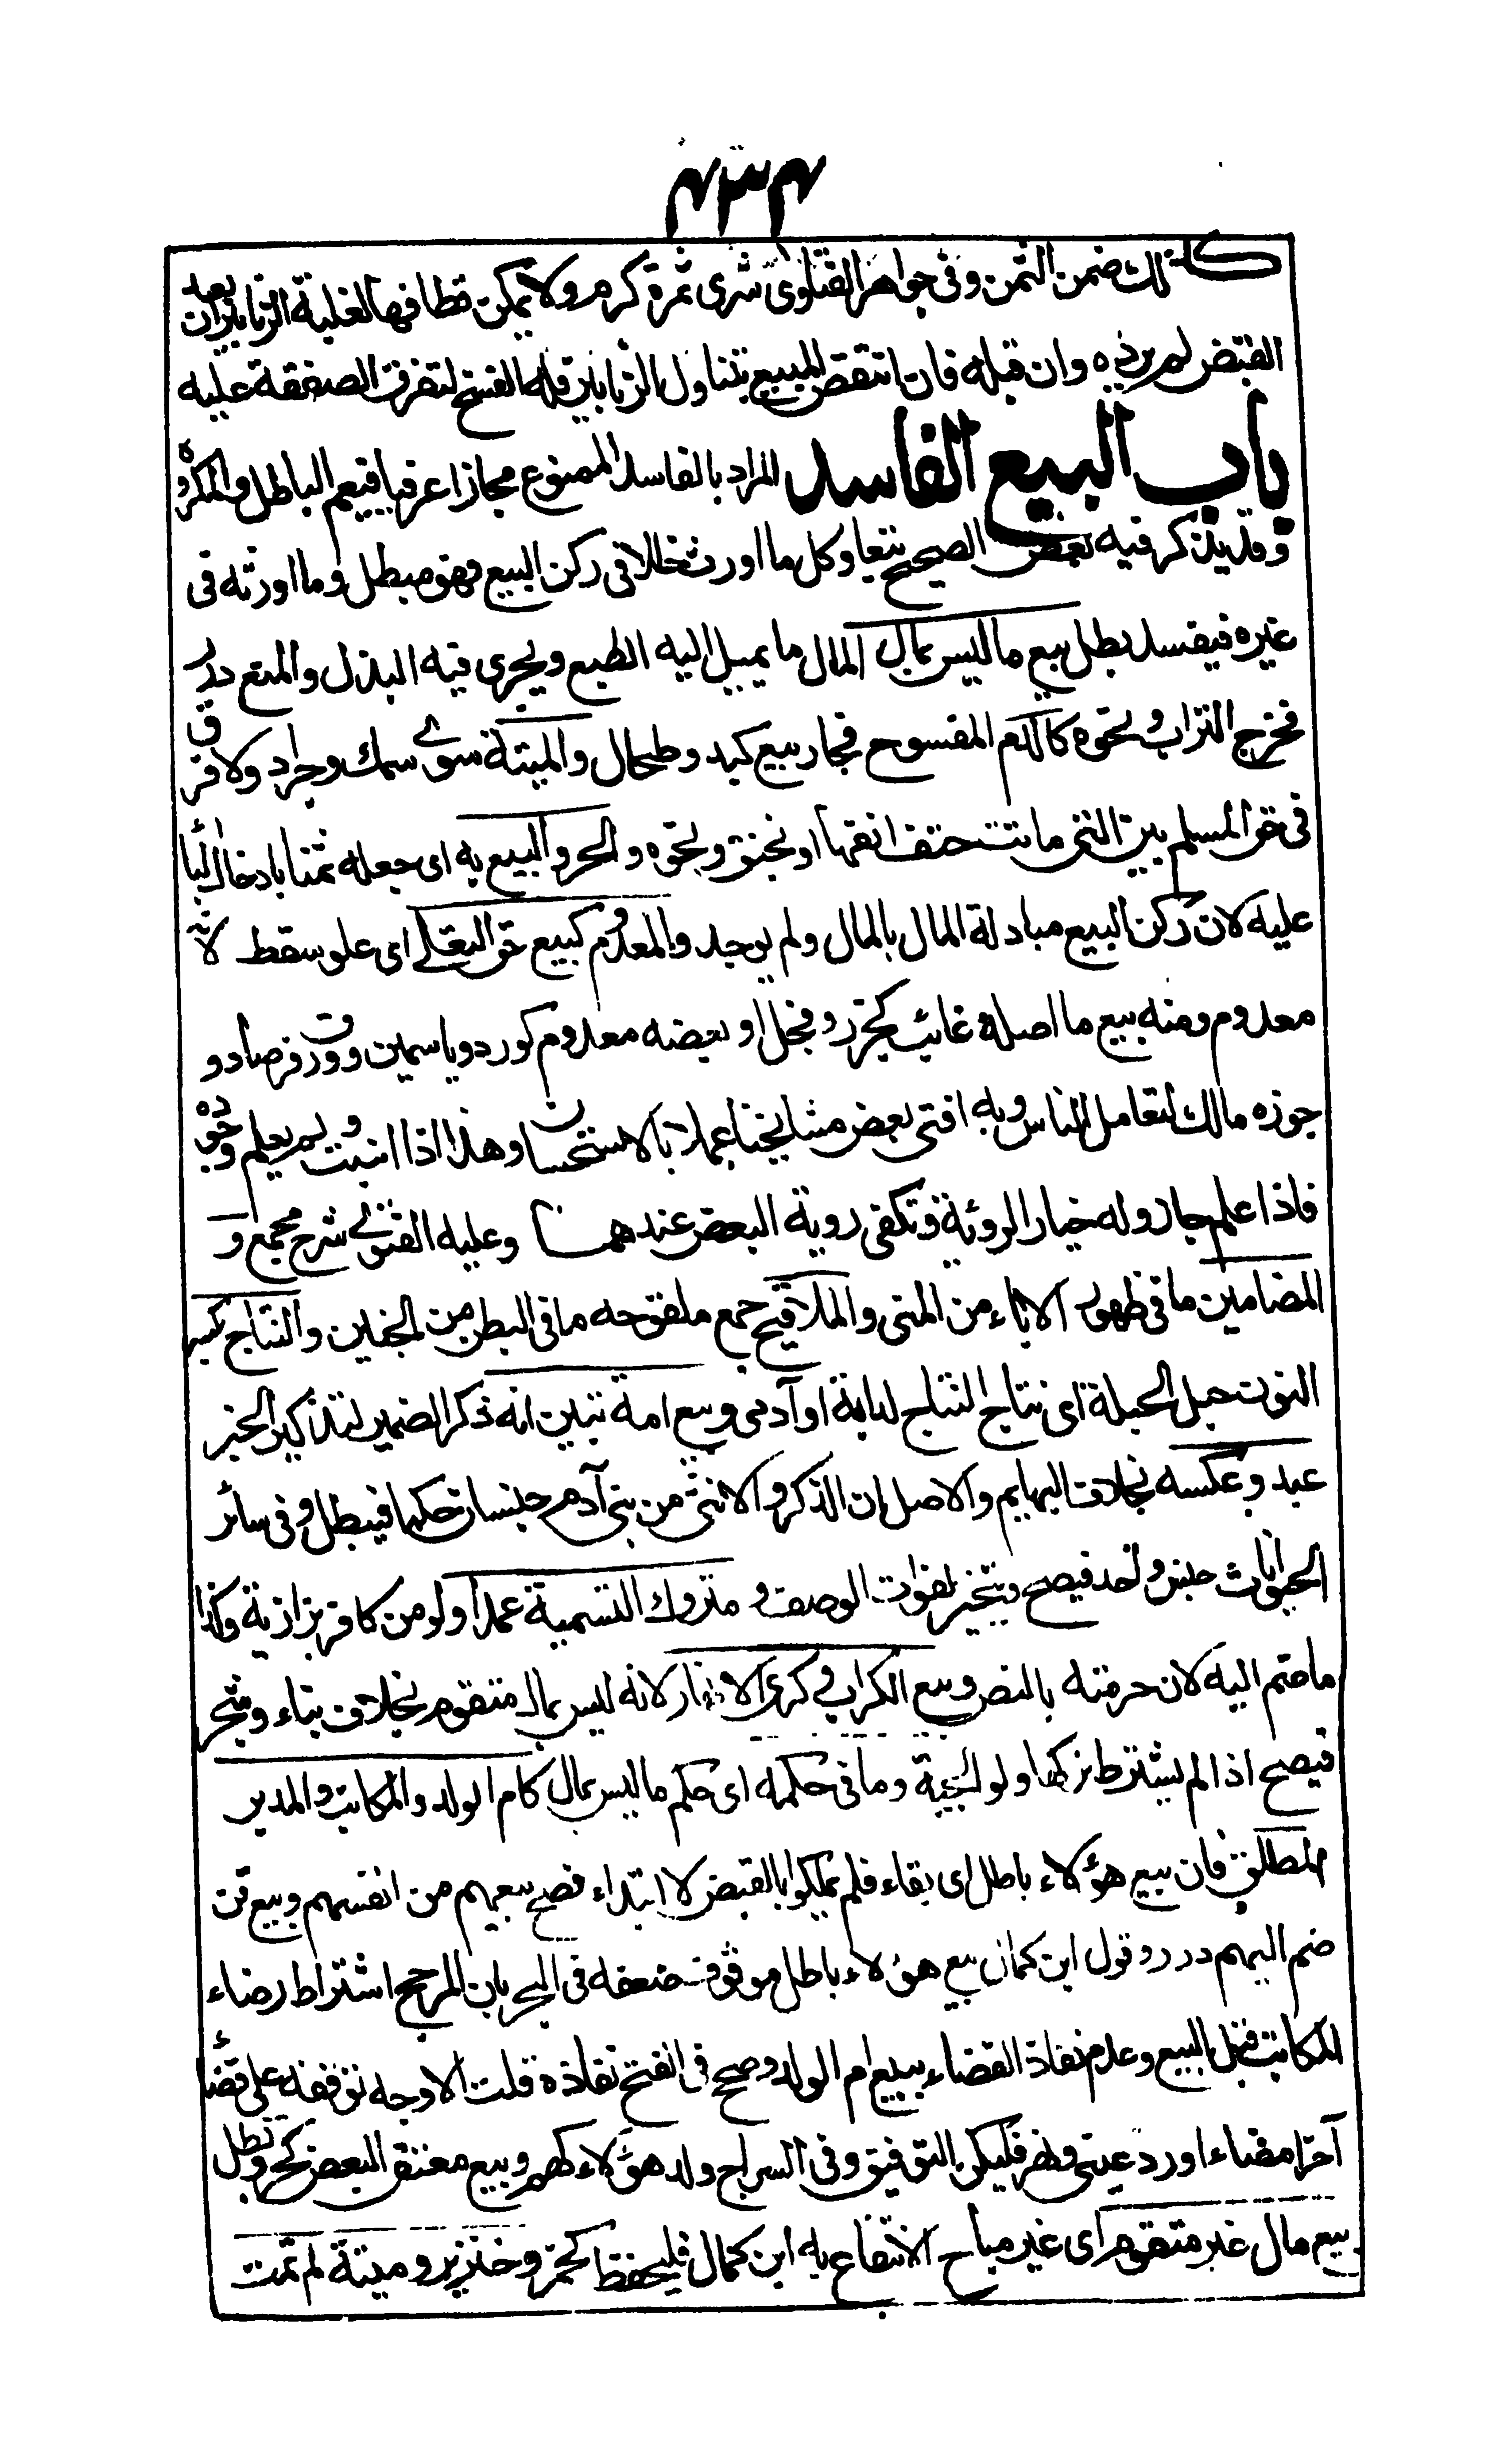 ۴۳۴
كذلك ضمن الثمن وفى جواهر الفتاوى شرى ثمرة كرم ولا يمكن قطافها لغلبة الزنابير ان بعد
القبض لم يرده وان قبله فان انتقص المبيع بتناول الزنابير فله الفسخ لتفرق الصفقة عليه
باب البيع الفاسد المراد بالفاسد الممنوع مجازا عرفيا فيعم الباطل والمكروه
وقد يذكر فيه بعض الصحيح تبعا وكل ما اورث خللا فى ركن البيع فهو مبطل وما اورثه فى
غيره فيفسد بطل بيع ما ليس بمال المال ما يميل اليه الطبع ويجرى فيه البذل والمنع درر
فخرج التراب ونحوه كالدم المفسوح فجاز بيع كبد وطحال والميتة سوى سمك وجراد ولا فرق
فى حق المسلم بين التى ماتت حتف انفها او بخنق ونحوه والحر والبيع به اى جعله ثمنا بادخال البأ
عليه لان ركن البيع مبادلة المال بالمال ولم يوجد والمعدوم كبيع حق التعلى اى علو سقط لانه
معدوم ومنه بيع ما اصله غائب كجزر وفجل او بعضه معدوم كورد وياسمين وورق فرصاد و
جوزه مالك لتعامل الناس وبه افتى بعض مشايخنا عملا بالاستحسان وهذا اذا انبت ولم يعلم وجوده
فاذا علم جاز وله خيار الرؤية وتكفى روية البعض عندهما وعليه الفتوى شرح مجمع و
المضامين ما فى ظهور الاباء من المنى والملاقيح جمع ملقوحه ما فى البطن من الجنين والنتاج بكسر
النون حبل الحبلة اى نتاج النتاج لدابة او آدمى وبيع امة تبين انه ذكر الضمير لتذكير الخبر
عبد وعكسه بخلاف البهايم والاصل ان الذكر والانثى من بنى آدم جنسان حكما فيبطل وفى سائر
الحيوانات جنس واحد فيصح ويتخير لفوات الوصف ومتروك التسمية عمدا ولو من كافر بزازية وكذا
ما ضم اليه لان حرمته بالنص وبيع الكراب وكرى الانهار لانه ليس بمال متقوم بخلاف بناء وشجر
فيصح اذا لم يشترط تركها ولوالجية وما فى حكمه اى حكم ما ليس بمال كام الولد والمكاتب والمدبر
المطلق فان بيع هؤلاء باطل اى بقاء فلم يملكوا بالقبض لا ابتداء فصح بيعهم من انفسهم وبيع قن
ضم اليهم درر وقول ابن كمال بيع هؤلاء باطل موقوف ضعفه فى البحر بان المرجح اشتراط رضاء
المكاتب قبل البيع وعدم نفاذ القضاء ببيع ام الولد وصحح فى الفتح نفاذه قلت الاوجه توقفه على قضأ
آخر امضاء او رد عينى ونهر فليكن التوفيق وفى السراج ولد هؤلاء كهم وبيع معتق البعض كحر وبطل
بيع مال غير متقوم اى غير مباح الانتفاع به ابن كمال فليحفظ كخمر وخنزير وميتة لم تمت